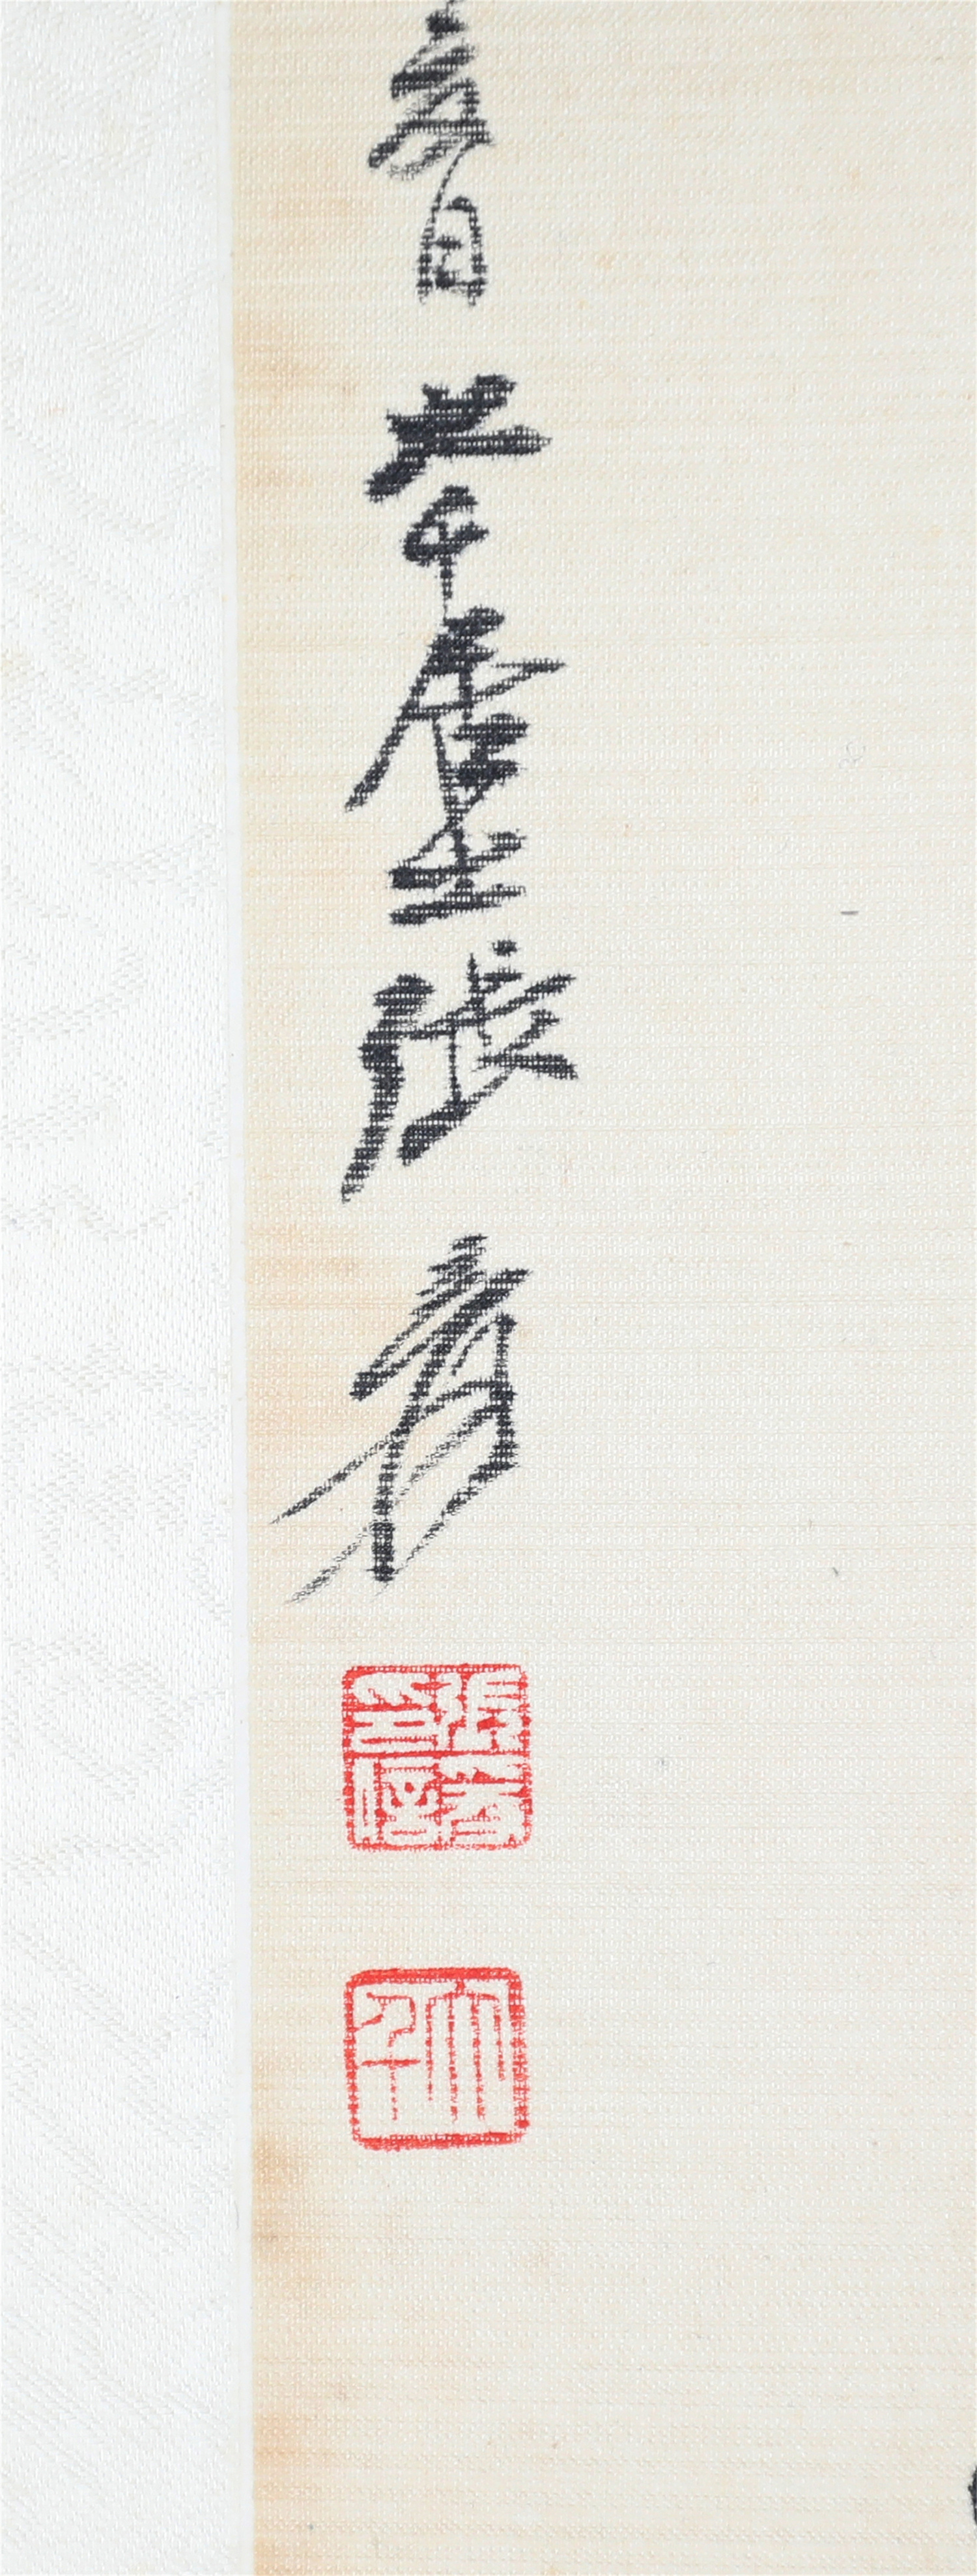 大千居士張爰
張爰之印
大千